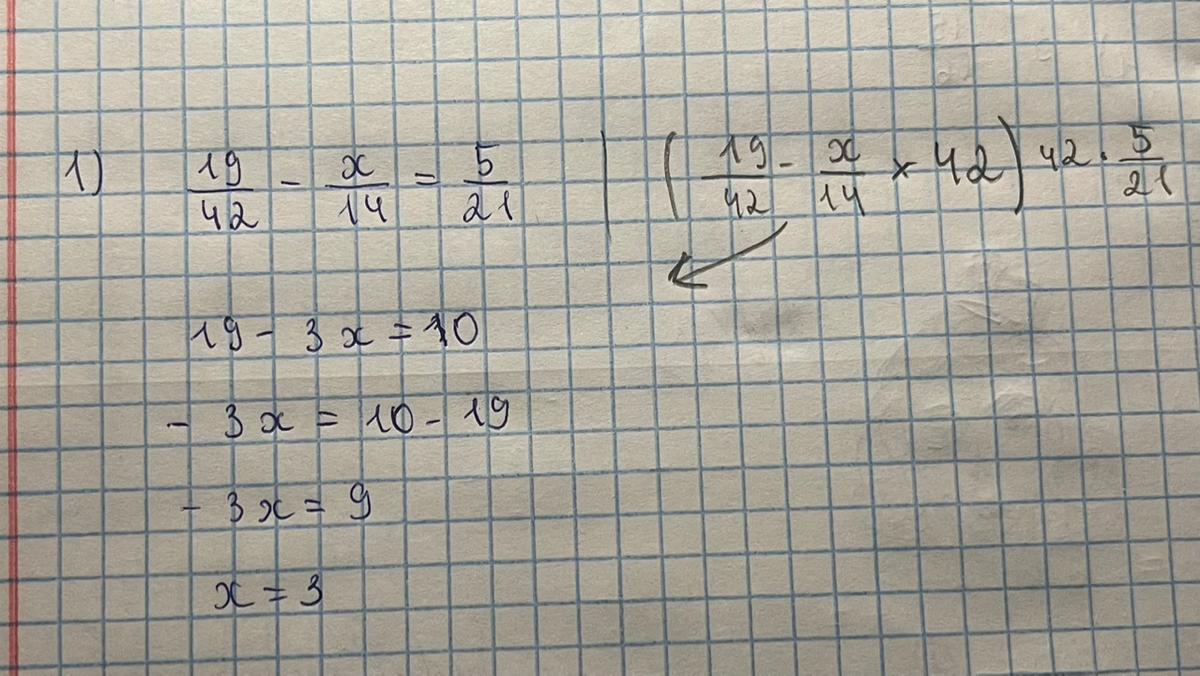 1) 19/42 - x/14 = 5/21 | (19/42 - x/14 × 42) 42 · 5/21
19 - 3x = 10
- 3x = 10 - 19
- 3x = 9
x = 3